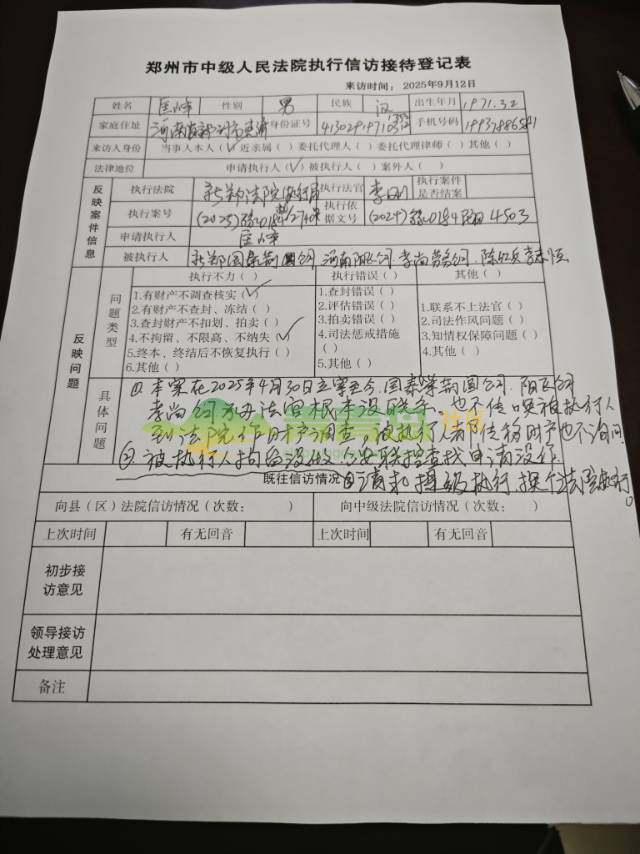 郑州市中级人民法院执行信访接待登记表
来访时间：2025年9月12日
姓名 性别 男 民族 汉 出生年月 1971.3.2
家庭住址 身份证号 手机号码
来访人身份 当事人本人（√）近亲属（ ）委托代理人（ ）委托代理律师（ ）其他（ ）
法律地位 申请执行人（√）被执行人（ ）案外人（ ）
反映案件信息
执行法院 新郑法院执行局 执行法官 李 执行案件是否结案
执行案号 执行依据文号 (2024)豫0184民初4503
申请执行人
被执行人
反映问题
问题类型
执行不力（ ） 执行错误（ ） 其他（ ）
1.有财产不调查核实（√）
2.有财产不查封、冻结（ ）
3.查封财产不扣划、拍卖（ ）
4.不拘留、不限高、不纳失（√）
5.终本、终结后不恢复执行（ ）
6.其他（ ）
1.查封错误（ ）
2.评估错误（ ）
3.拍卖错误（ ）
4.司法惩戒措施（ ）
5.其他（ ）
1.联系不上法官（ ）
2.司法作风问题（ ）
3.知情权保障问题（ ）
4.其他（ ）
具体问题
①本案在2025年4月30日立案至今,国泰 公司.阳 公司
孝尚公司承办法官根本没联系,也不传唤被执行人
到法院作财产调查,被执行人 财产也不询问
②被执行人拘留没做 查找申请没作
既往信访情况 ③请求提级执行,换个法官执行。
向县（区）法院信访情况（次数： ） 向中级法院信访情况（次数： ）
上次时间 有无回音 上次时间 有无回音
初步接访意见
领导接访处理意见
备注